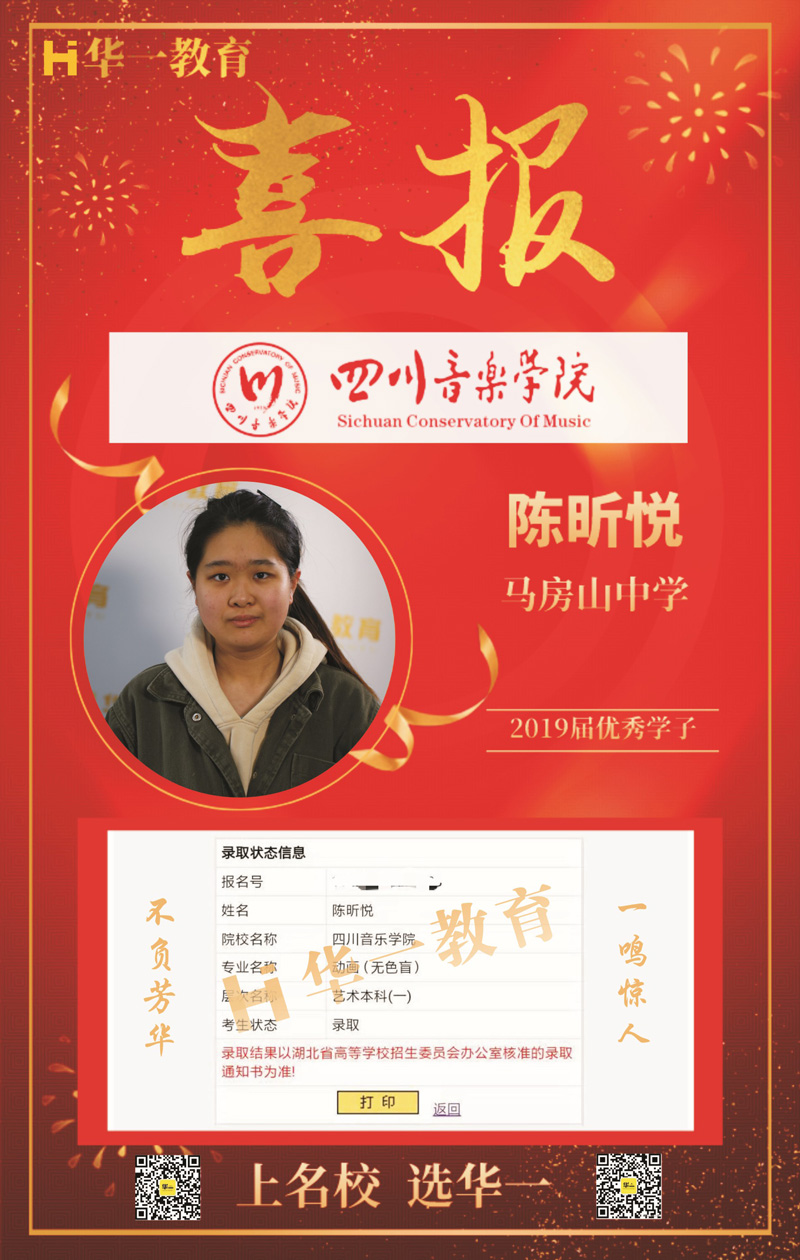 Hi华一教育
喜报
SICHUAN CONSERVATORY OF MUSIC
四川音乐学院
四川音樂学院
Sichuan Conservatory Of Music
教育
陈昕悦
马房山中学
教育
2019届优秀学子
录取状态信息
报名号
姓名 陈昕悦
院校名称 四川音乐学院
专业名称 动画(无色盲)
层次名称 艺术本科(一)
考生状态 录取
录取结果以湖北省高等学校招生委员会办公室核准的录取
通知书为准!
打 印 返回
Hi华一教育
不负芳华
一鸣惊人
华一
上名校 选华一
华一